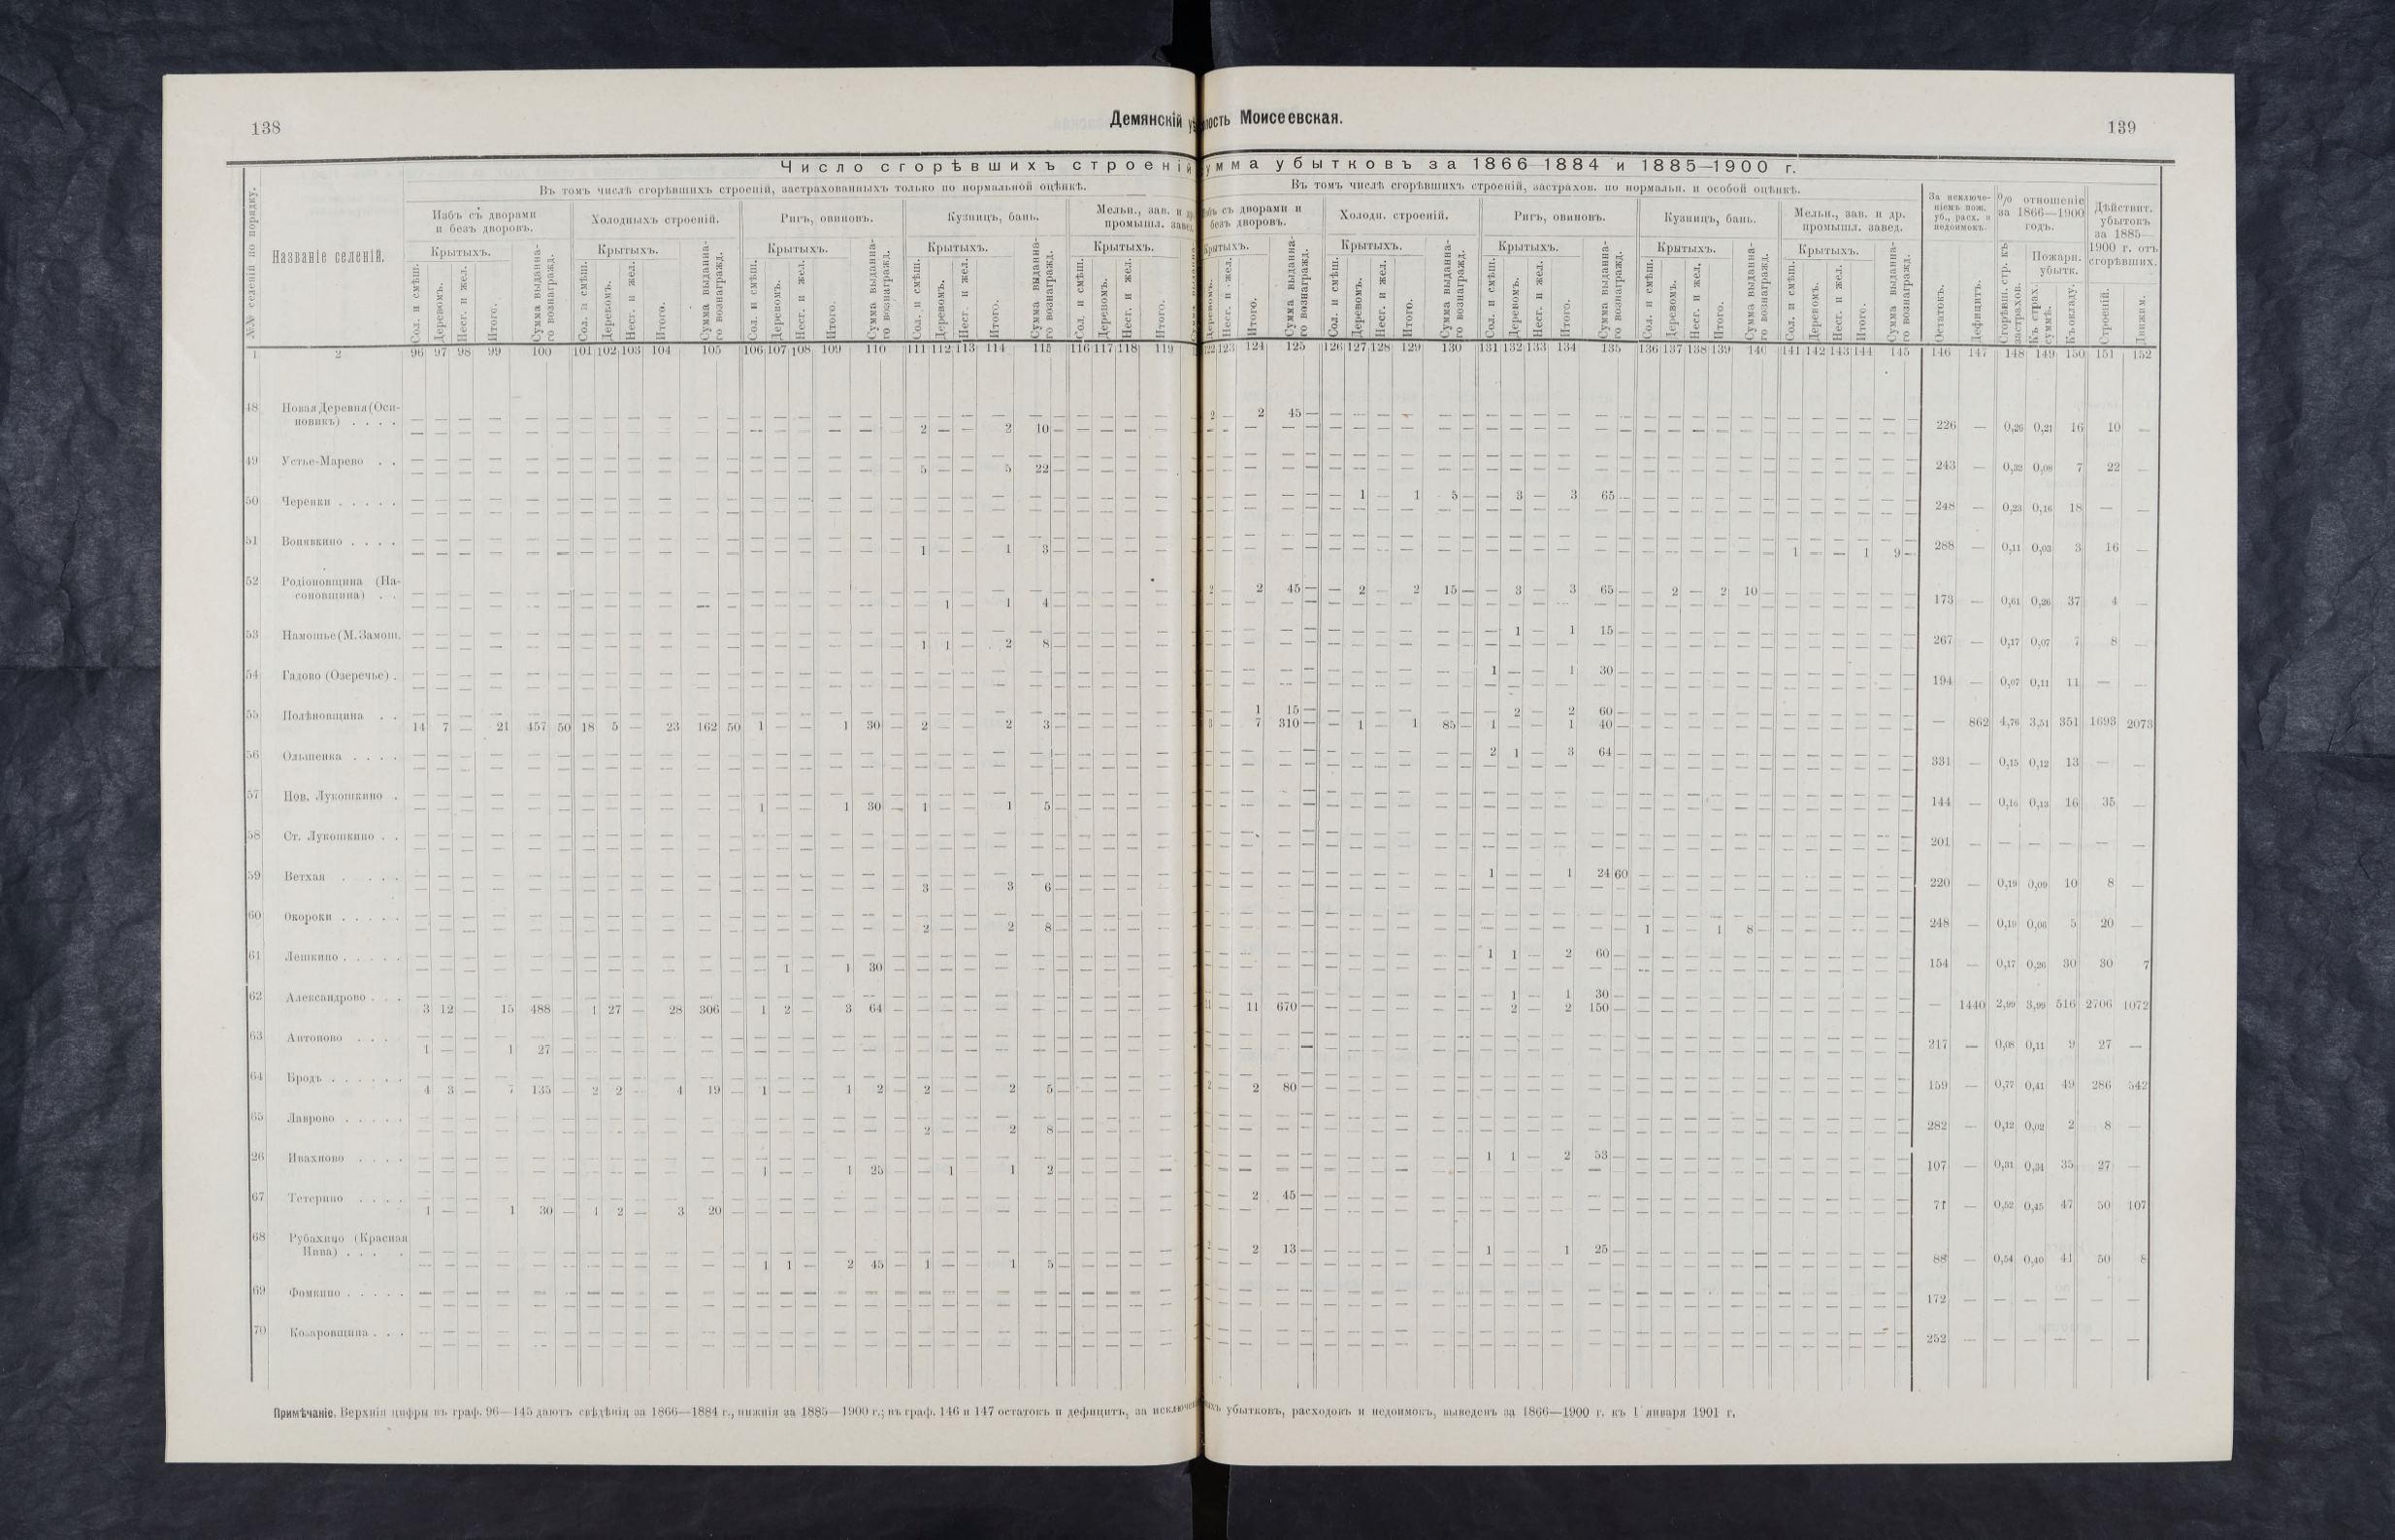 138
Демянскій
лость Моисеевская.
139
Число сгорѣвшихъ строеній
умма убытковъ за 1866 1884 и 1885—1900 г.
Въ томъ числѣ сгорѣвшихъ строеній, застрахованныхъ только по нормальной оцѣнкѣ.
Въ томъ числѣ сгорѣвшихъ строеній, застрахов. по нормальн. и особой оцѣнкѣ.
№№ селеній по порядку.
Названіе селеній.
Избъ съ дворами и безъ дворовъ.
Холодныхъ строеній.
Ригъ, овиновъ.
Кузницъ, бань.
Мельн., зав. и др. промышл. завед.
съ дворами и безъ дворовъ.
Холодн. строеній.
Ригъ, овиновъ.
Кузницъ, бань.
Мельн., зав. и др. промышл. завед.
За исключеніемъ пож. уб., расх. и недоимокъ.
% отношеніе за 1866—1900 годъ.
Дѣйствит. убытокъ за 1885—1900 г. отъ сгорѣвшихъ.
Крытыхъ. Крытыхъ. Крытыхъ. Крытыхъ. Крытыхъ. Крытыхъ. Крытыхъ. Крытыхъ. Крытыхъ.
Пожарн. убытк.
Сол. и смѣш. Деревомъ. Несг. и жел. Итого. Сумма выданнаго вознагражд.
Сол. и смѣш. Деревомъ. Несг. и жел. Итого. Сумма выданнаго вознагражд.
Сол. и смѣш. Деревомъ. Несг. и жел. Итого. Сумма выданнаго вознагражд.
Сол. и смѣш. Деревомъ. Несг. и жел. Итого. Сумма выданнаго вознагражд.
Сол. и смѣш. Деревомъ. Несг. и жел. Итого.
Деревомъ. Несг. и жел. Итого. Сумма выданнаго вознагражд.
Сол. и смѣш. Деревомъ. Несг. и жел. Итого. Сумма выданнаго вознагражд.
Сол. и смѣш. Деревомъ. Несг. и жел. Итого. Сумма выданнаго вознагражд.
Сол. и смѣш. Деревомъ. Несг. и жел. Итого. Сумма выданнаго вознагражд.
Сол. и смѣш. Деревомъ. Несг. и жел. Итого. Сумма выданнаго вознагражд.
Остатокъ. Дефицитъ. Сгорѣвш. стр. къ застрахов. Къ страх. суммѣ. Къ окладу. Строеній. Движим.
1 2 96 97 98 99 100 101 102 103 104 105 106 107 108 109 110 111 112 113 114 115 116 117 118 119 122 123 124 125 126 127 128 129 130 131 132 133 134 135 136 137 138 139 140 141 142 143 144 145 146 147 148 149 150 151 152
48 Новая Деревня (Оси- 2 — 2 45 —
новикъ) . . . . 2 — — 2 10 — 226 — 0,26 0,21 16 10 —
49 Устье-Марево . . 5 — — 5 22 — 243 — 0,32 0,08 7 22 —
50 Черенки . . . . . — 1 — 1 5 — — 3 — 3 65 — 248 — 0,23 0,16 18 — —
51 Вонявкино . . . . 1 — — 1 3 — 1 — — 1 9 — 288 — 0,11 0,03 3 16 —
52 Родіоновщина (На- 2 — 2 45 — — 2 — 2 15 — — 3 — 3 65 — — 2 — 2 10 —
соновщина) . . — 1 — 1 4 — 173 — 0,61 0,26 37 4 —
53 Намошье (М. Замош. — 1 — 1 15 —
1 1 — 2 8 — 267 — 0,17 0,07 7 8 —
54 Гадово (Озеречье) . 1 — — 1 30 — 194 — 0,07 0,11 11 — —
55 Полѣновщина . . 1 15 — — 2 — 2 60 —
14 7 — 21 457 50 18 5 — 23 162 50 1 — — 1 30 — 2 — — 2 3 — 3 — 7 310 — — 1 — 1 85 — 1 — — 1 40 — — 862 4,76 3,51 351 1693 2073
56 Ольшенка . . . . 2 1 — 3 64 — 331 — 0,15 0,12 13 — —
57 Нов. Лукошкино . 1 — — 1 30 — 1 — — 1 5 — 144 — 0,16 0,13 16 35 —
58 Ст. Лукошкино . . 201 — — — — — —
59 Ветхая . . . . 1 — — 1 24 60
3 — — 3 6 — 220 — 0,19 0,09 10 8 —
60 Окороки . . . . . 2 — — 2 8 — 1 — — 1 8 — 248 — 0,19 0,06 5 20 —
61 Лешкино . . . . . 1 1 — 2 60 —
— 1 — 1 30 — 154 — 0,17 0,26 30 30 7
62 Александрово . . . — 1 — 1 30 —
3 12 — 15 488 — 1 27 — 28 306 — 1 2 — 3 64 — 11 — 11 670 — — 2 — 2 150 — — 1440 2,99 3,99 516 2706 1072
63 Антоново . . . 1 — — 1 27 — 217 — 0,08 0,11 9 27 —
64 Бродъ . . . . . . 4 3 — 7 135 — 2 2 — 4 19 — 1 — — 1 2 — 2 — — 2 5 — 2 — 2 80 — 159 — 0,77 0,41 49 286 542
65 Лаврово . . . . . 2 — — 2 8 — 282 — 0,12 0,02 2 8 —
26 Ивахново . . . . 1 1 — 2 53 —
1 — — 1 25 — — 1 — 1 2 — 107 — 0,31 0,34 35 27 —
67 Тетерино . . . . — 2 45 —
1 — — 1 30 — 1 2 — 3 20 — 71 — 0,52 0,45 47 50 107
68 Рубахино (Красная
Нива) . . . . 2 — 2 13 — 1 — — 1 25 —
1 1 — 2 45 — 1 — — 1 5 — 88 — 0,54 0,40 41 50 8
69 Фомкино . . . . . 172 — — — — — —
70 Козаровщина . . . 252 — — — — — —
Примѣчаніе. Верхнія цифры въ граф. 96—145 даютъ свѣдѣнія за 1866—1884 г., нижнія за 1885—1900 г.; въ граф. 146 и 147 остатокъ и дефицитъ, за убытковъ, расходовъ и недоимокъ, выведенъ за 1866—1900 г. къ 1 января 1901 г.